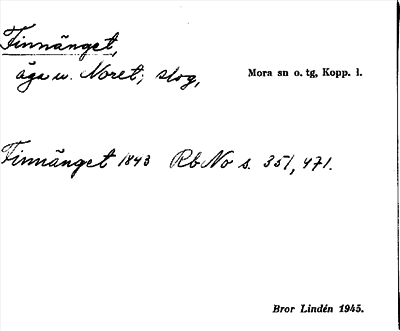 Finnänget,
äga u. Noret; skog,
Mora sn o. tg, Kopp. l.
Finnänget 1843 Rb No s. 351, 471.
Bror Lindén 1945.